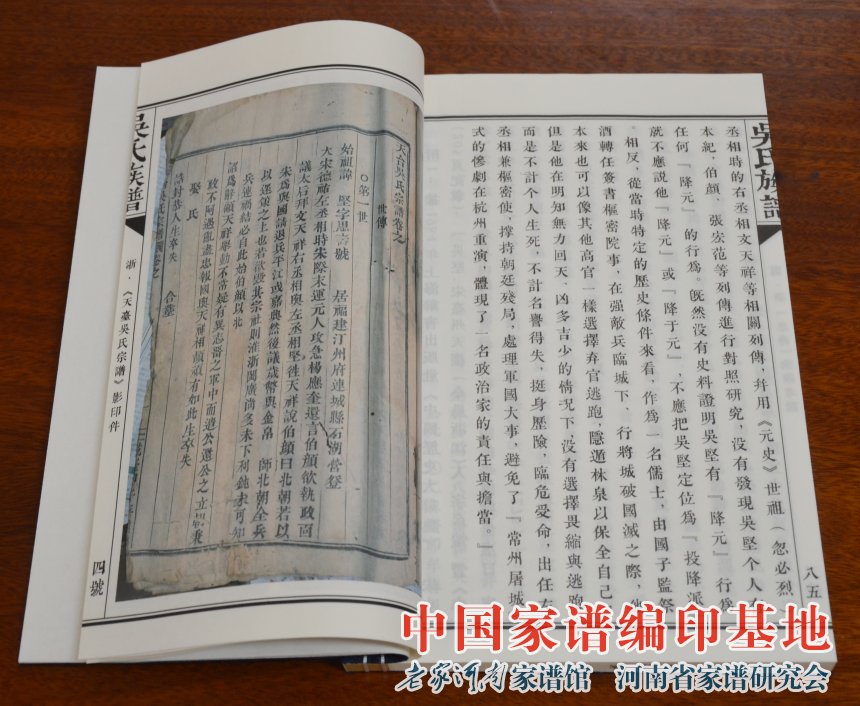 吳氏族譜
丞相時的右丞相文天祥等相關列傳,幷用《元史》世祖(忽必烈
本紀,伯顏、張宏范等列傳進行對照研究,沒有發現吳堅个人有
任何『降元』的行爲。旣然沒有史料證明吳堅有『降元』行爲
就不應説他『降元』或『降于元』,不應把吳堅定位爲『投降派
。相反,從當時特定的歷史條件來看,作爲一名儒士,由國子監祭
酒轉任簽書樞密院事,在强敵兵臨城下、行將城破國滅之際,他
本來也可以像其他高官一樣選擇弃官逃跑,隱遁林泉以保全自己
但是他在明知無力回天、凶多吉少的情况下,沒有選擇畏縮與逃跑
而是不計个人生死,不計名譽得失,挺身歷險,臨危受命,出任左
丞相兼樞密使,撑持朝廷殘局,處理軍國大事,避免了『常州屠城
式的慘劇在杭州重演,體現了一名政治家的責任與擔當。』
八五
天台吳氏宗譜卷之
世傳
○第一世
始祖諱 堅字思壽號 居福建汀州府連城縣石湖營祭
大宋德祐左丞相時朱際末運元人攻急楊應奎還言伯顏欲執政面
議太后拜文天祥右丞相奥左丞相堅徃天祥說伯顏曰北朝若以
宋爲與國請退兵平江或嘉奥然後議歲幣與金帛 師北朝全兵
以還策之上也若欲毀其宗社則淮浙閩廣尚多未下利鈍未可知
兵連禍結必自此始伯顏以北
詔爲辭顧天祥舉動不常疑有異志畱之軍中而遣公還公之立朝秉
政不阿遇亂盡忠報國與天祥相頡頏有如此生卒失
娶氏
誥封恭人生卒失 合塟
吳氏族譜
浙·《天臺吳氏宗譜》影印件
四號
中国家谱编印基地
老家河南家谱馆 河南省家谱研究会